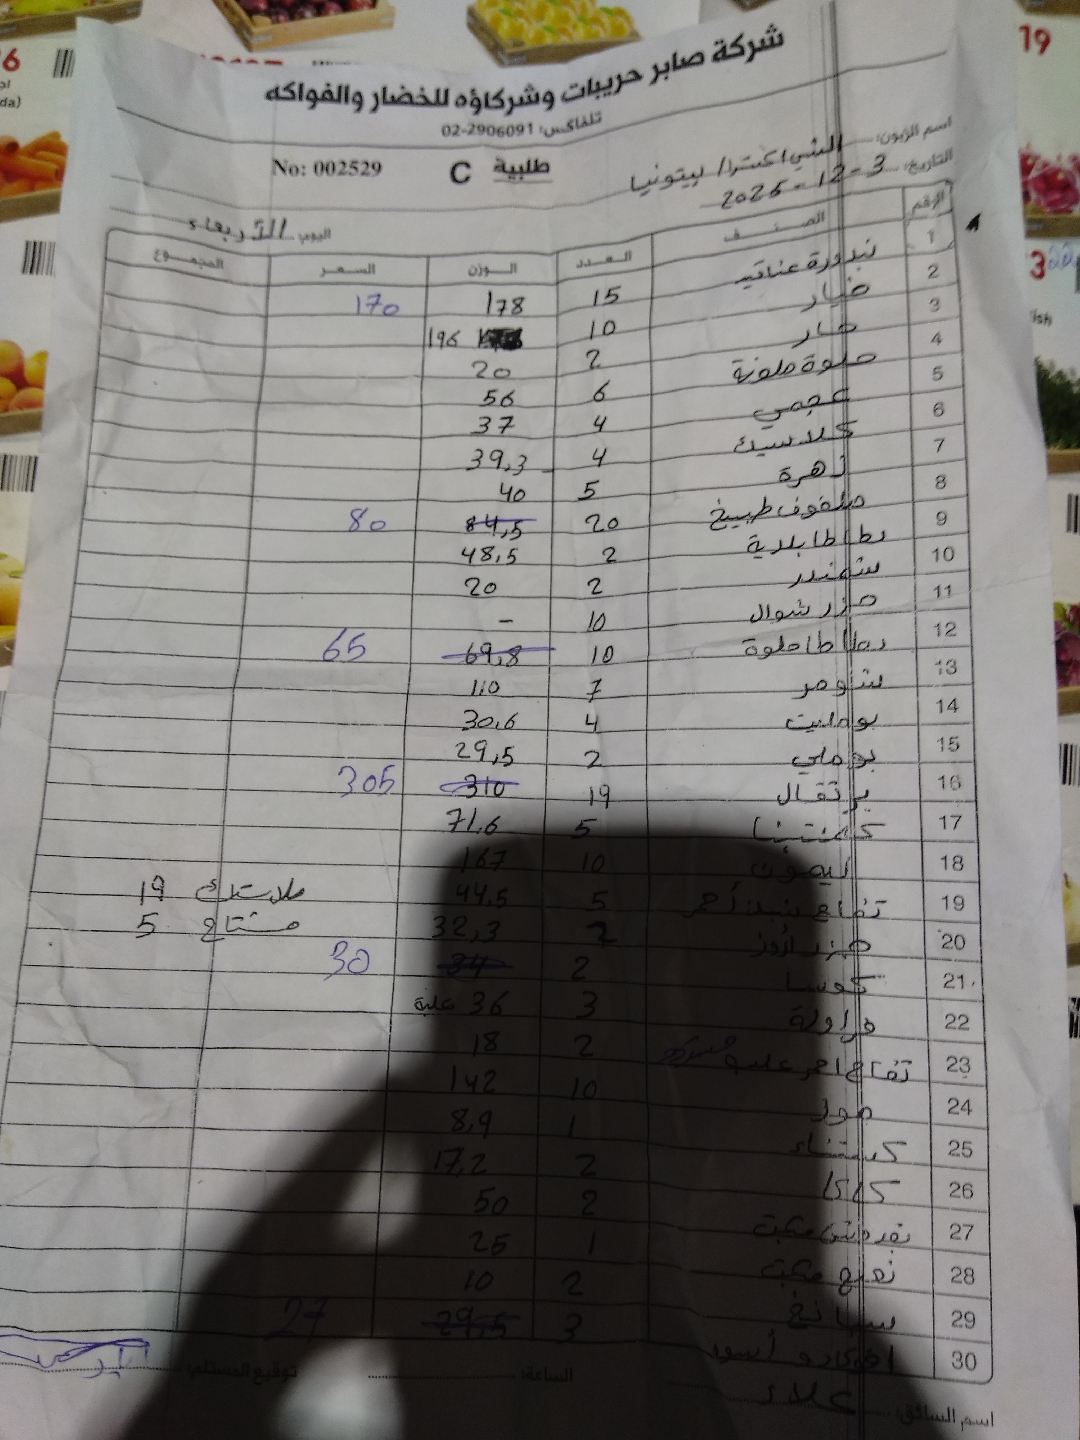 شركة صابر حريبات وشركاؤه للخضار والفواكه
تلفاكس: 02-2906091
No: 002529 C طلبية
اسم الزبون: الشني اكسترا/ بيتونيا
التاريخ: 3-12-2025
اليوم: الأربعاء
الرقم الصنف العدد الوزن السعر المجموع
1 بندورة عناقيد 15 178 170
2 خيار 10 196
3 حار 2 20
4 حلوة ملونة 6 56
5 عجمي 4 37
6 كلاسيك 4 39,3
7 زهرة 5 40
8 ملفوف طبيخ 20 84,5 80
9 بطاطا بلدية 2 48,5
10 شمندر 2 20
11 جزر شوال 10 -
12 بطاطا حلوة 10 69,8 65
13 شومر 7 110
14 بوملیت 4 30,6
15 بوملي 2 29,5
16 برتقال 19 310 305
17 كلمنتينا 5 71,6
18 ليمون 10 167
19 تفاح نبيذ أحمر 5 44,5 بلاستك 19
20 2 32,3 مشتاح 5
21 كوسا 2 34 30
22 فراولة 3 36 علبة
23 تفاح احمر علبة 2 18
24 موز 10 142
25 كستناء 1 8,9
26 كاكا 2 17,2
27 2 50
28 1 25
29 سبانخ 2 10
30 افوكادو أسود 3 29,5 27
اسم السائق: علاء
الساعة:
توقيع المستلم:
19
3
ish
da)